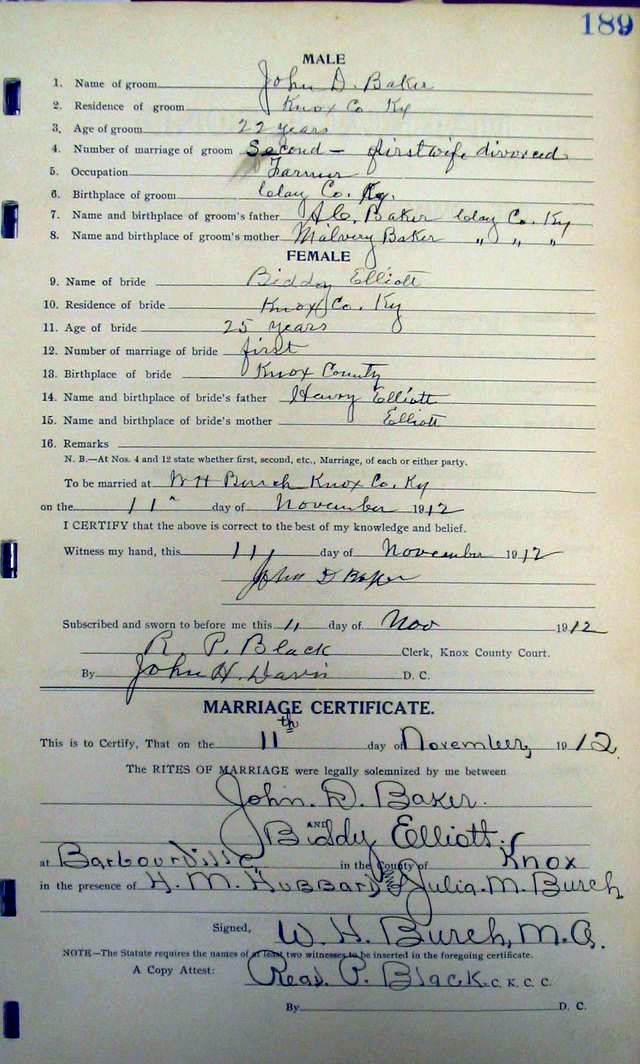 189
MALE
1. Name of groom John D. Baker
2. Residence of groom Knox Co Ky
3. Age of groom 22 years
4. Number of marriage of groom Second - first wife divorced
5. Occupation Farmer
6. Birthplace of groom Clay Co. Ky.
7. Name and birthplace of groom's father Baker Clay Co. Ky
8. Name and birthplace of groom's mother Malvery Baker " " "
FEMALE
9. Name of bride Biddy Elliott
10. Residence of bride Knox Co. Ky
11. Age of bride 25 years
12. Number of marriage of bride first
13. Birthplace of bride Knox County
14. Name and birthplace of bride's father Henry Elliott
15. Name and birthplace of bride's mother Elliott
16. Remarks
N. B.—At Nos. 4 and 12 state whether first, second, etc., Marriage, of each or either party.
To be married at W H Burch Knox Co. Ky
on the 11" day of November 1912
I CERTIFY that the above is correct to the best of my knowledge and belief.
Witness my hand, this 11, day of November 1912
John D Baker
Subscribed and sworn to before me this 11 day of Nov 1912
R. P. Black Clerk, Knox County Court.
By John H. Davis D. C.
MARRIAGE CERTIFICATE.
This is to Certify, That on the 11th day of November, 1912.
The RITES OF MARRIAGE were legally solemnized by me between
John. D. Baker.
AND
Biddy Elliott.
at Barbourville in the County of Knox
in the presence of H. M. Hubbard & Julia. M. Burch
Signed, W. H. Burch, M. G.
NOTE—The Statute requires the names of at least two witnesses to be inserted in the foregoing certificate.
A Copy Attest: Read P. Black. C. K. C. C.
By D. C.